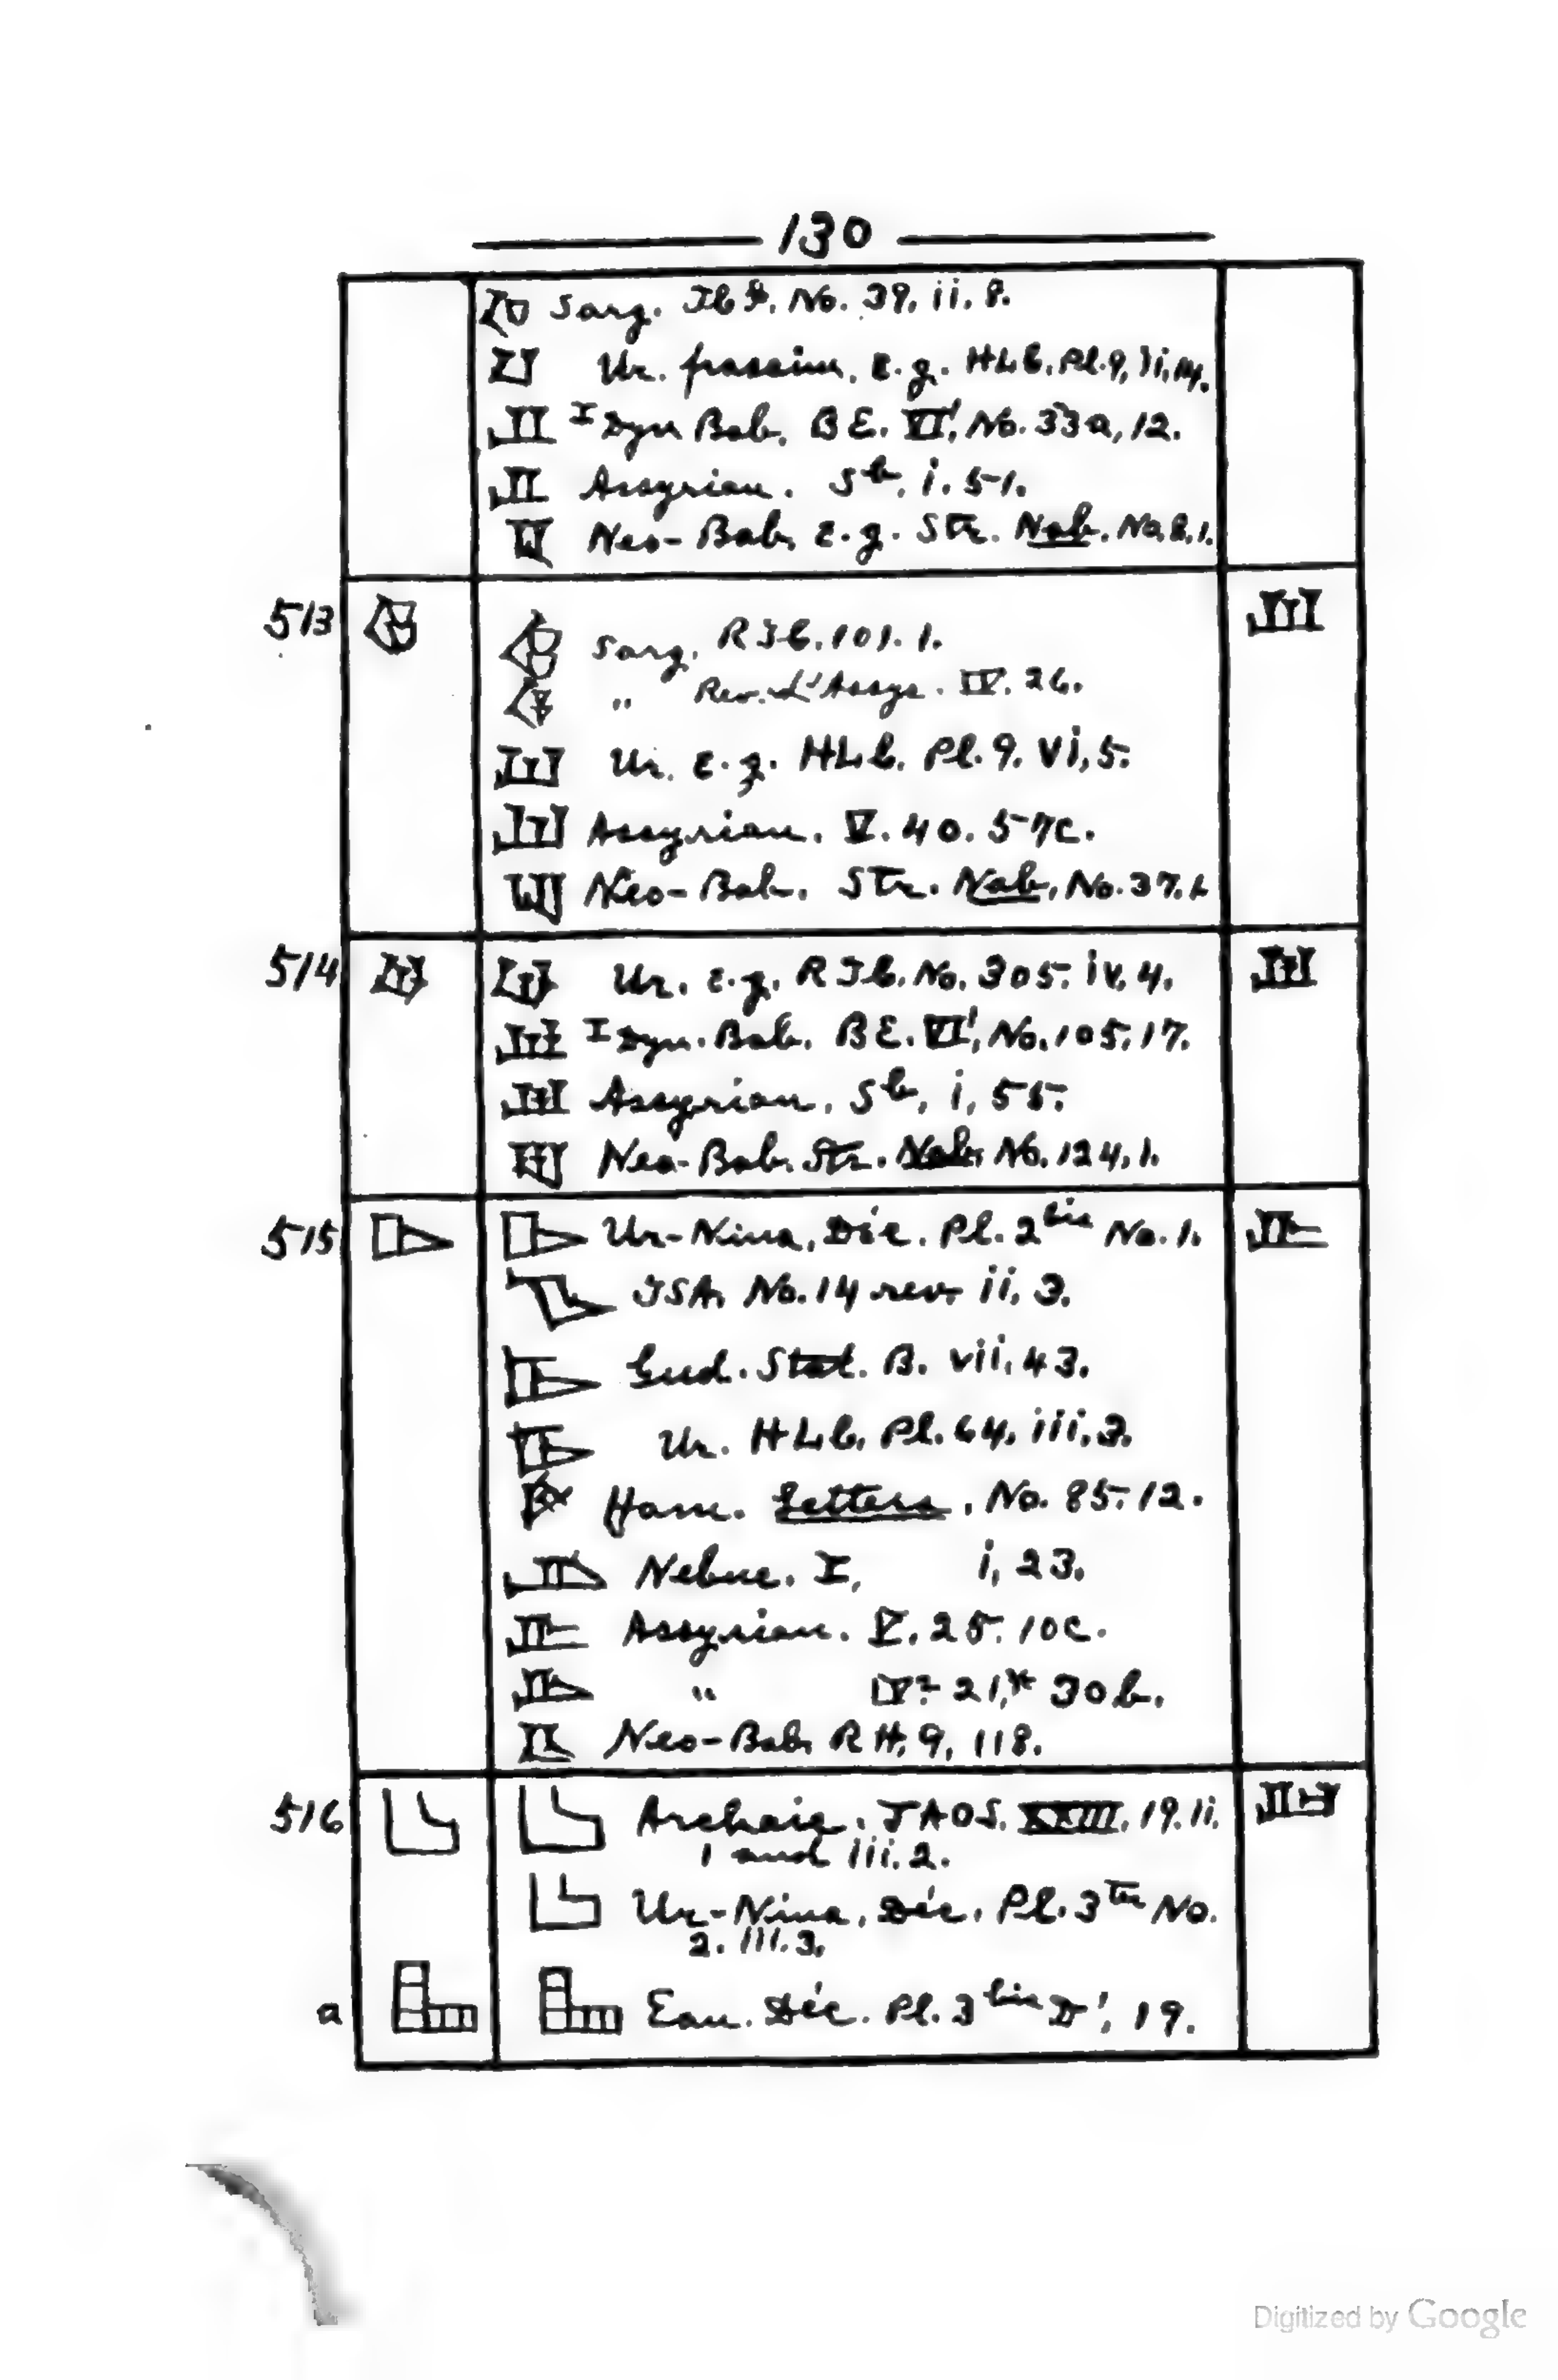 130
Sarg. No. 39. ii. 8.
Ur. passim. e.g. HLC. Pl. 9, ii, 14.
I Dyn Bab. BE. VI¹, No. 33a, 12.
Assyrian. Sᵇ, i. 51.
Neo-Bab. e.g. Str. Nab. No. 2, 1.
513
Sarg. RTC. 101. 1.
" Rev. d'Assyr. IV. 26.
Ur. e.g. HLC. Pl. 9. vi, 5.
Assyrian. V. 40. 57c.
Neo-Bab. Str. Nab. No. 37.
514
Ur. e.g. RTC. No. 305. iv. 4.
I Dyn. Bab. BE. VI¹, No. 105. 17.
Assyrian. Sᵇ, i, 55.
Neo-Bab. Str. Nab. No. 124, 1.
515
Ur-Nina, Déc. Pl. 2 bis No. 1.
ISA. No. 14 rev. ii. 3.
Gud. Stat. B. vii. 43.
Ur. HLC. Pl. 64, iii. 3.
Ham. Letters. No. 85. 12.
Nebuc. I, i, 23.
Assyrian. V. 25. 10c.
" IV² 21,* 30b.
Neo-Bab. RH. 9, 118.
516
Archaic. JAOS. XXIII. 19. ii.
1 and iii. 2.
Ur-Nina, Déc. Pl. 3 ter No.
2. III. 3.
a
Ean. Déc. Pl. 3 bis D¹, 19.
Digitized by Google